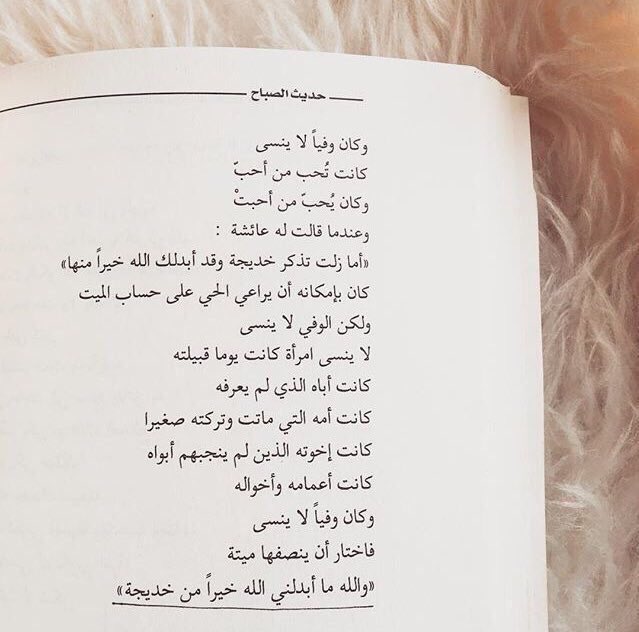 حديث الصباح
وكان وفياً لا ينسى
كانت تُحب من أحبّ
وكان يُحبّ من أحبتْ
وعندما قالت له عائشة :
«أما زلت تذكر خديجة وقد أبدلك الله خيراً منها»
كان بإمكانه أن يراعي الحي على حساب الميت
ولكن الوفي لا ينسى
لا ينسى امرأة كانت يوما قبيلته
كانت أباه الذي لم يعرفه
كانت أمه التي ماتت وتركته صغيرا
كانت إخوته الذين لم ينجبهم أبواه
كانت أعمامه وأخواله
وكان وفياً لا ينسى
فاختار أن ينصفها ميتة
«والله ما أبدلني الله خيراً من خديجة»